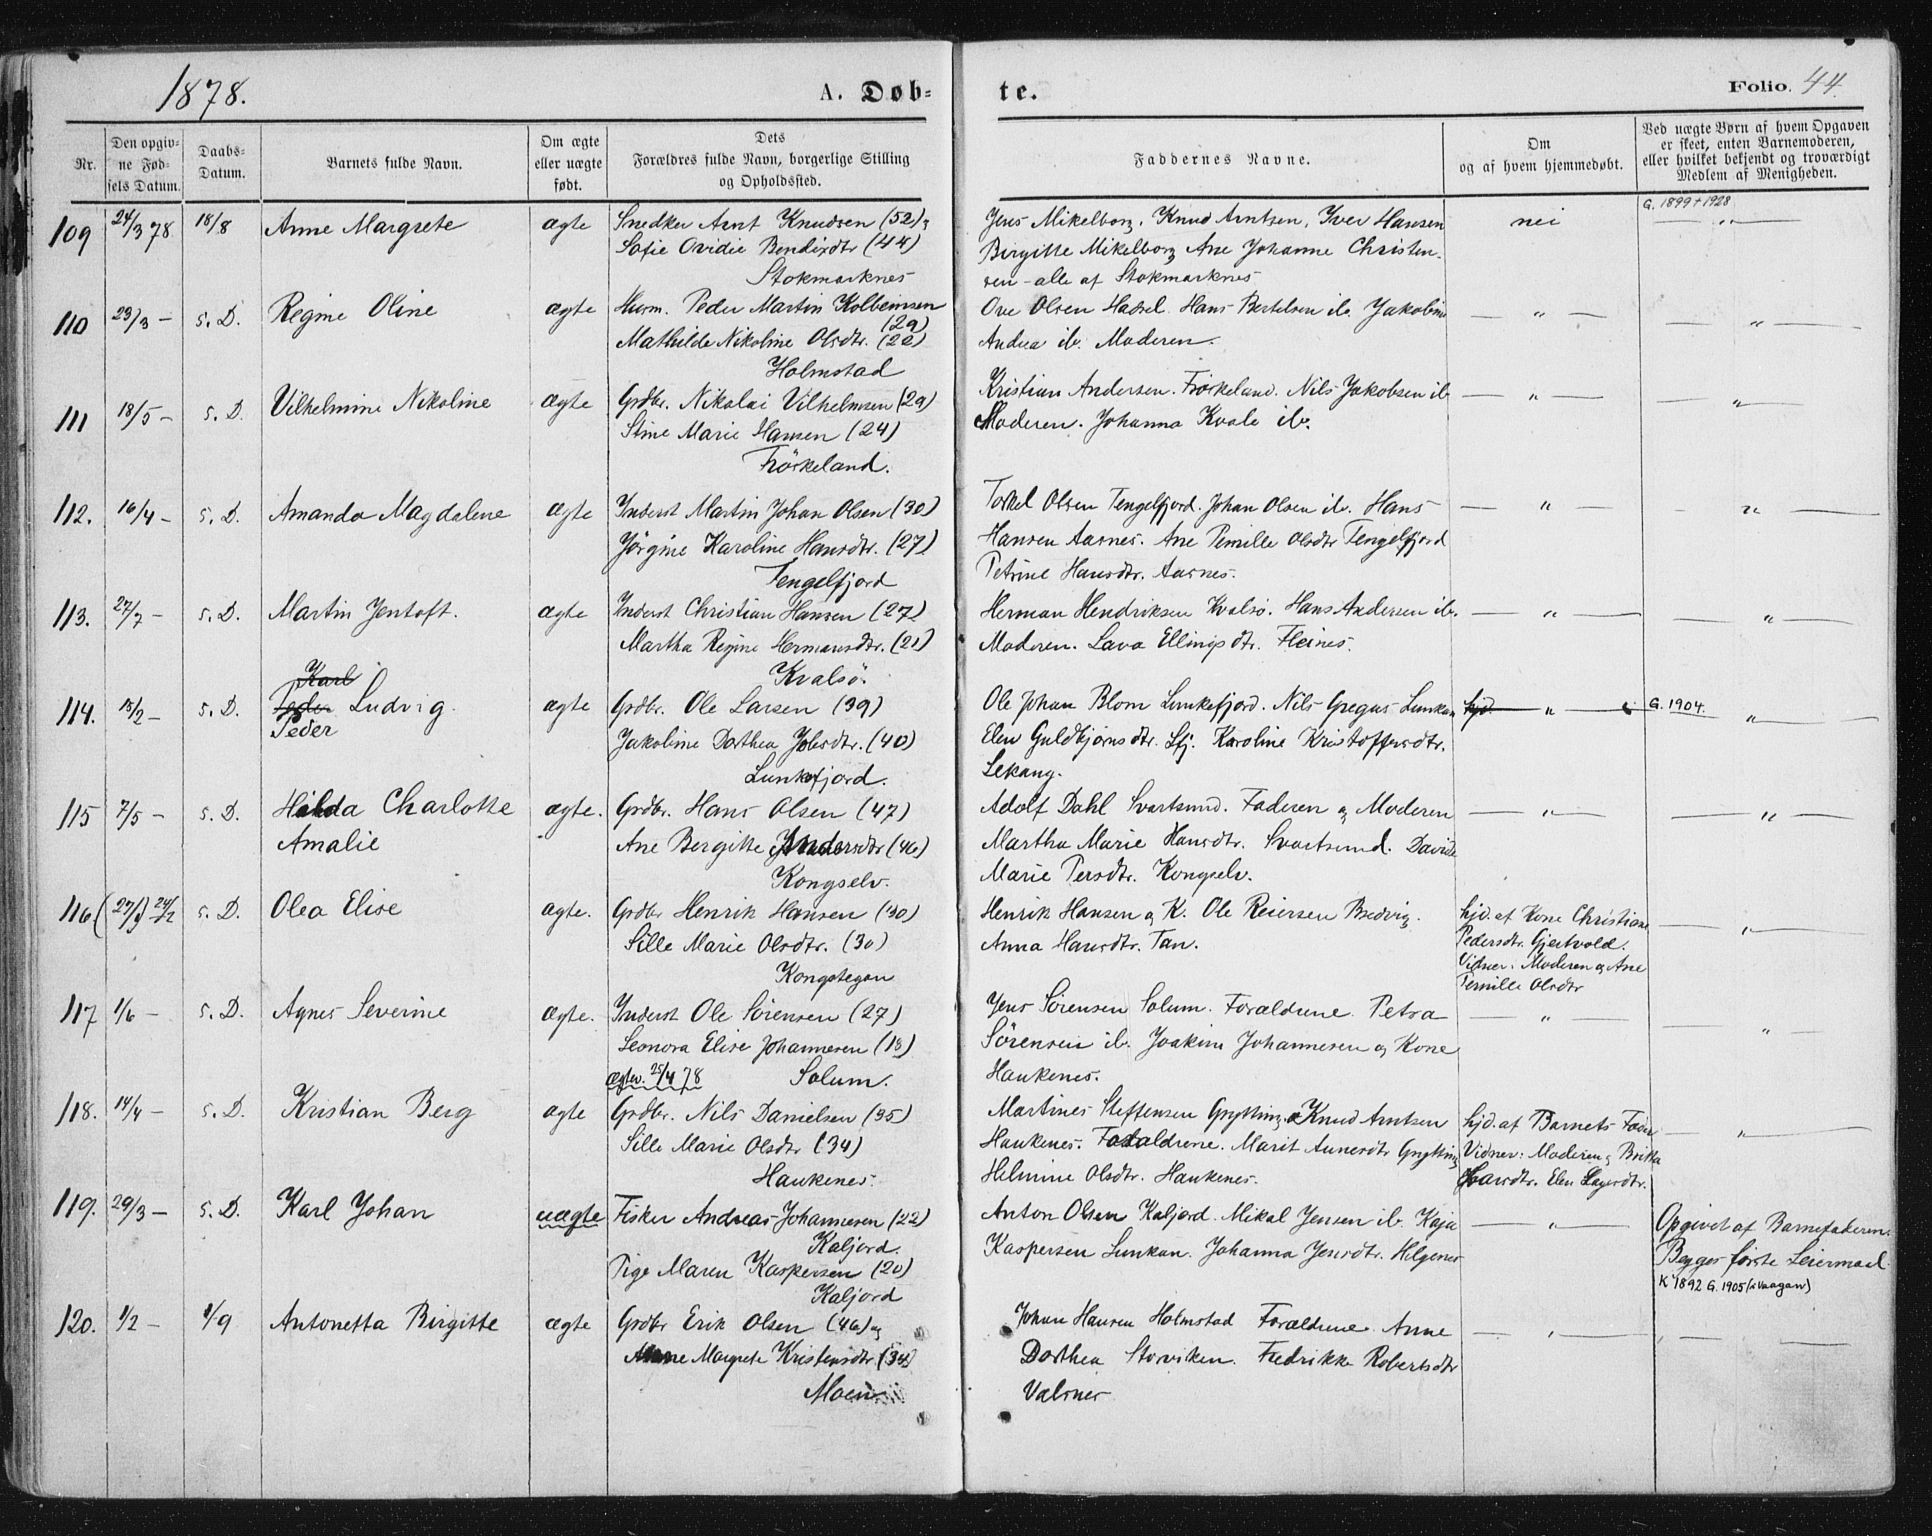 1878.
A. Døb-
te.
Folio. 44.
Nr.
Den opgiv-
ne Fød-
sels Datum.
Daabs-
Datum.
Barnets fulde Navn.
Om ægte
eller uægte
født.
Dets
Forældres fulde Navn, borgerlige Stilling
og Opholdssted.
Faddernes Navne.
Om
og af hvem hjemmedøbt.
Ved uægte Børn af hvem Opgaven
er skeet, enten Barnemoderen,
eller hvilket bekjendt og troværdigt
Medlem af Menigheden.
109 24/3 78 18/8 Anne Margrete ægte Snedker Arnt Knudsen (52) Jens Mikelborg. Knud Arntsen, Iver Hansen nei G. 1899 + 1928 "
Sofie Ovidie Bendixdtr (44) Birgitte Mikelborg Ane Johanne Christen-
Stokmarknes sen - alle af Stokmarknes
110 23/3 - s. D. Regine Oline ægte Husm. Peder Martin Kolbeinsen Ove Olsen Hadsel. Hans Bertelsen ib. Jakobine " "
(29)
Mathilde Nikoline Olsdtr. (22) Andrea ib. Moderen.
Holmstad
111 18/5 - s. D. Vilhelmine Nikoline ægte Grdbr. Nikolai Vilhelmsen (29) Kristian Andersen. Frøskeland. Nils Jakobsen ib " "
Stine Marie Hansen (24) Moderen. Johanna Kvale ib.
Frøskeland.
112. 16/4 - s. D. Amanda Magdalene ægte Inderst Martin Johan Olsen (30) Torkel Olsen Tengelfjord. Johan Olsen ib. Hans " "
Jørgine Karoline Hansdtr. (27) Hansen Aarnes. Ane Pernille Olsdtr Tengelfjord
Tengelfjord Petrine Hansdtr. Aarnes.
113. 27/7 - s. D. Martin Jentoft. ægte Inderst Christian Hansen (27) Herman Hendriksen Kvalsø. Hans Andersen ib. " "
Martha Regine Hermansdtr. (21) Moderen. Lava Ellingsdtr. Fleines.
Karl Kvalsø.
114. 15/2 - s. D. Peder Ludvig. ægte Grdbr. Ole Larsen (39) Ole Johan Blom Lunkefjord. Nils Gregus Lunkan hjd. " G. 1904. "
Peder
Jakobine Dorthea Johsdtr. (40) Elen Guldbjørnsdtr. Lfj. Karoline Kristoffersdtr.
Lunkefjord. Lekang.
115 7/5 - s. D. Hilda Charlotte ægte. Grdbr. Hans Olsen (47) Adolf Dahl Svartsund. Faderen og Moderen " "
Amalie Ane Bergitte Andersdtr (46) Martha Marie Hansdtr. Svartsund. Davida
Kongselv. Marie Persdtr. Kongselv.
116 (27/ ) 24/2 s. D. Olea Elise ægte. Grdbr Henrik Hansen (30) Henrik Hansen og K. Ole Reiersen Bredvig. hjd. af Kone Christiane "
Sille Marie Olsdtr. (30) Anna Hansdtr. Tan. Pedersdtr. Gjertvold.
Kongstegan Vidner: Moderen og Ane
Pernille Olsdtr
117 1/6 - s. D. Agnes Severine ægte. Inderst Ole Sørensen (27) Jens Sørensen Solum. Forældrene. Petra " "
Leonora Elise Johannesen (18) Sørensen ib. Joakim Johannesen og Kone
ægtev. 25/4 78 Solum. Haukenes.
118. 14/4 - s. D. Kristian Berg ægte Grdbr. Nils Danielsen (35) Martines Steffensen Grytting. Knud Arntsen hjd. af Barnets Fader "
Sille Marie Olsdtr (34) Haukenes. Forældrene. Marit Aunesdtr Grytting Vidner: Moderen og Britta
Haukenes. Helmine Olsdtr. Haukenes. Ivarsdtr. Elen
119. 29/3 - s. D. Karl Johan uægte Fisker Andreas Johannesen (22) Anton Olsen Kaljord. Mikal Jensen ib. Kaja " Opgivet af Barnefaderen.
Kaljord. Kaspersen Lunkan. Johanna Jensdtr. Helgenes Begges første Leiermaal.
Pige Maren Kaspersen (20) K 1892 G. 1905 (i Vaagan)
Kaljord
120. 1/2 - 1/9 Antonetta Birgitte ægte Grdbr Erik Olsen (46) og Johan Hansen Holmstad Forældrene. Anne "
Anne Margrete Kristensdtr (34) Dorthea Storviken. Fredrikke Robertsdtr
Moen Valsnes